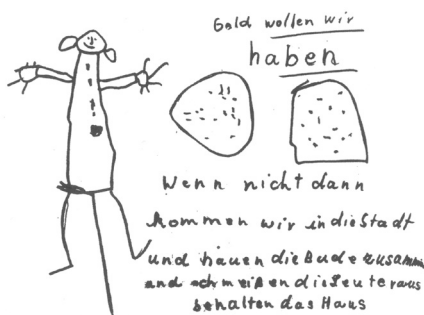 Geld wollen wir
haben
Wenn nicht dann
kommen wir in die Stadt
und hauen die Bude zusammen
und schmeißen die Leute raus
behalten das Haus